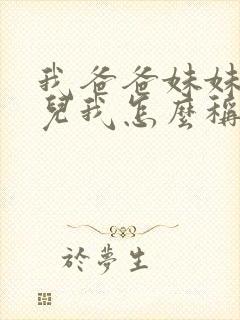 我爸爸妹妹
兒我怎麼稱
於夢生